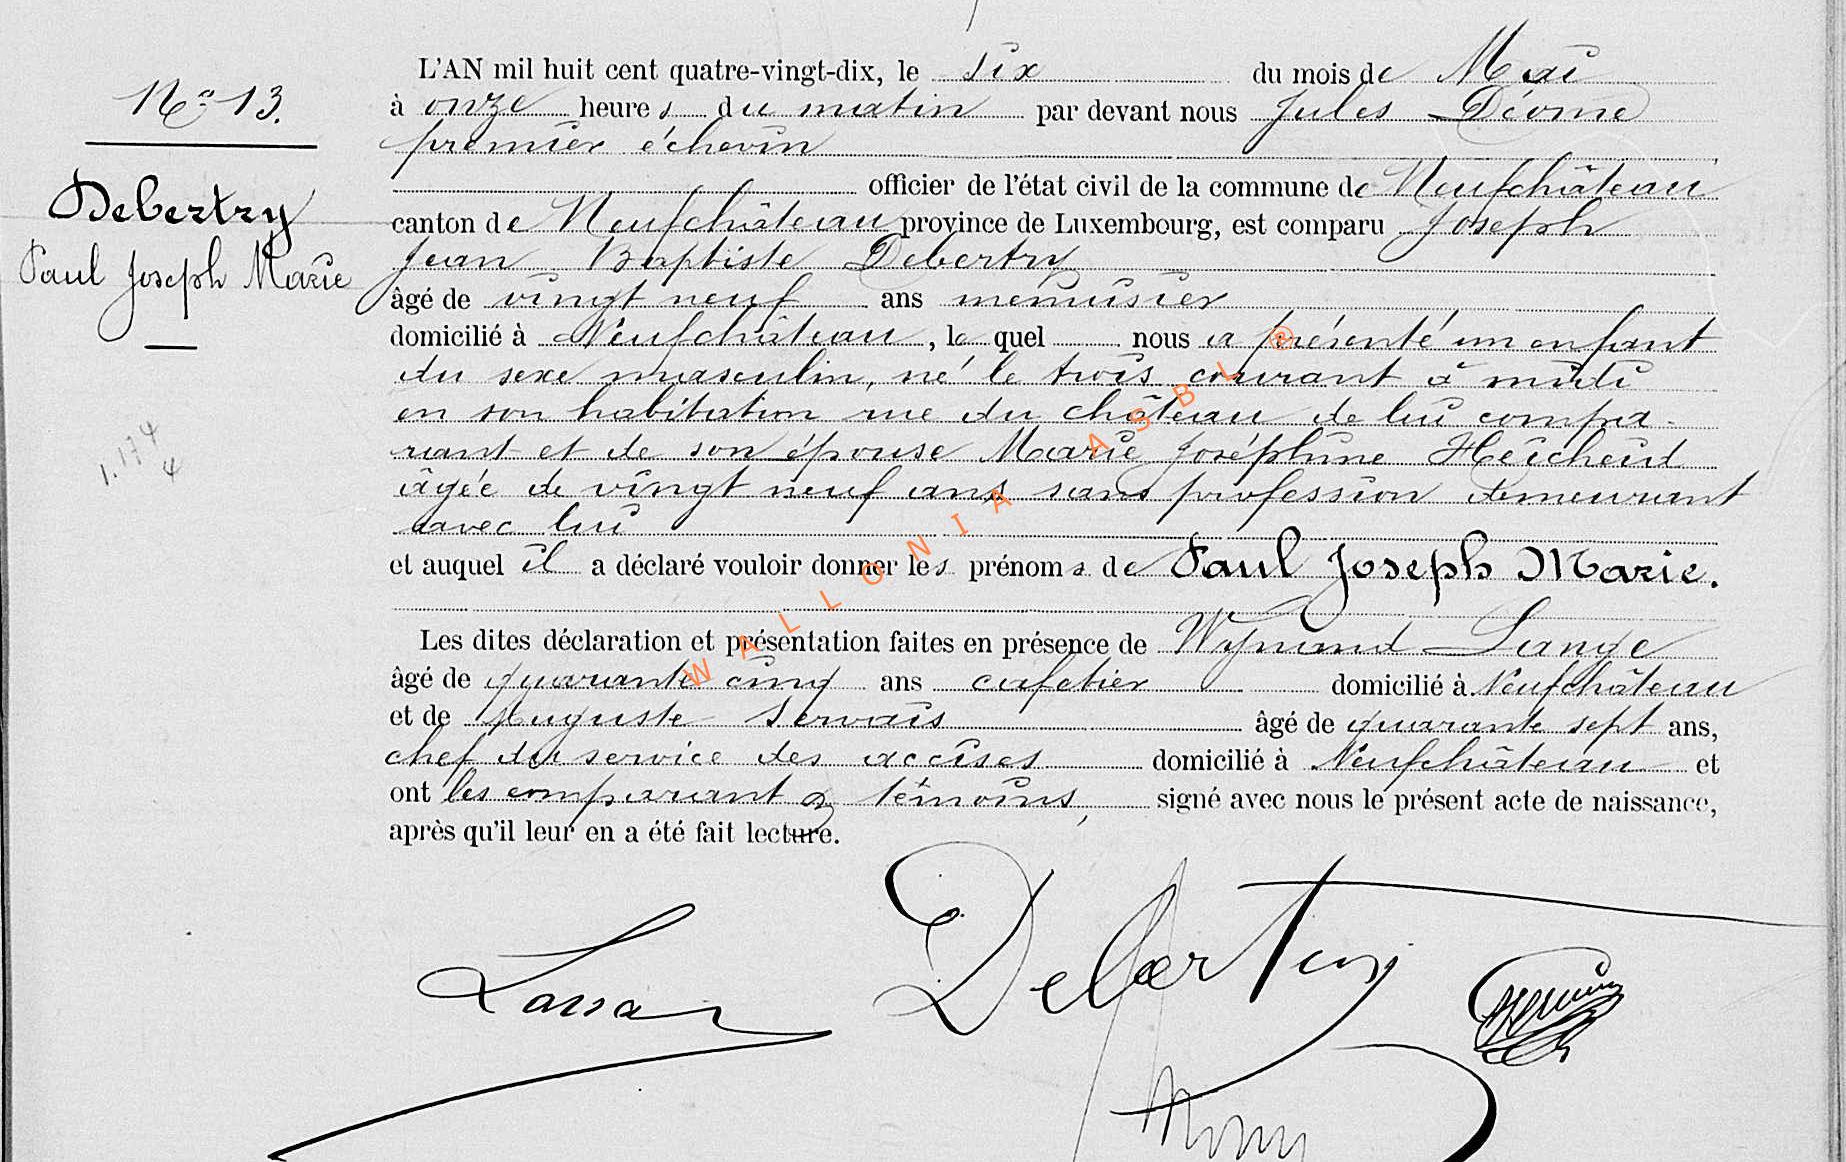 L'AN mil huit cent quatre-vingt-dix, le six du mois de Mai
No 13.
à onze heures du matin par devant nous Jules Déome
premier échevin
officier de l'état civil de la commune de Neufchâteau
Debertry
canton de Neufchâteau province de Luxembourg, est comparu Joseph
Paul Joseph Marie
Jean Baptiste Debertry
âgé de vingt neuf ans menuisier
domicilié à Neufchâteau, le quel nous a présenté un enfant
du sexe masculin, né le trois courant à midi
en son habitation rue du château de lui compa-
rant et de son épouse Marie Joséphine Heicheid
1.174
4
âgée de vingt neuf ans sans profession demeurant
avec lui
et auquel il a déclaré vouloir donner les prénoms de Paul Joseph Marie.
Les dites déclaration et présentation faites en présence de Wynand Lange
âgé de quarante cinq ans cafetier domicilié à Neufchâteau
et de Auguste Servais âgé de quarante sept ans,
chef de service des accises domicilié à Neufchâteau et
ont les comparant & témoins, signé avec nous le présent acte de naissance,
après qu'il leur en a été fait lecture.
WALLONIA ASBL ®
Debertry